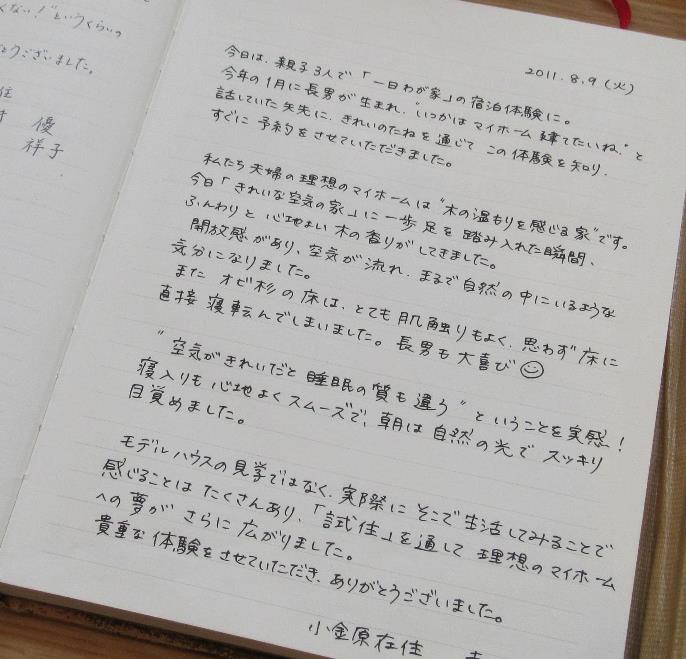 くない！"というくらいの
とうございました。
住
優
祥子
2011.8.9(火)
今日は、親子3人で「一日わが家」の宿泊体験に。
今年の1月に長男が生まれ、"いつかはマイホーム建てたいね"と
話していた矢先に、きれいのたねを通じてこの体験を知り、
すぐに予約をさせていただきました。
私たち夫婦の理想のマイホームは"木の温もりを感じる家"です。
今日「きれいな空気の家」に一歩足を踏み入れた瞬間、
ふんわりと心地よい木の香りがしてきました。
開放感があり、空気が流れ、まるで自然の中にいるような
気分になりました。
また オビ杉の床は、とても肌触りもよく、思わず床に
直接寝転んでしまいました。長男も大喜び☺
"空気がきれいだと睡眠の質も違う"ということを実感！
寝入りも心地よくスムーズで、朝は自然の光でスッキリ
目覚めました。
モデルハウスの見学ではなく、実際にそこで生活してみることで
感じることはたくさんあり、「試住」を通して理想のマイホーム
への夢がさらに広がりました。
貴重な体験をさせていただき、ありがとうございました。
小金原在住